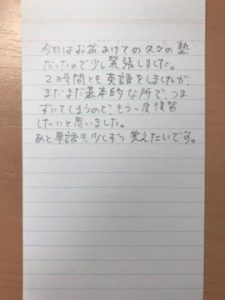 今日はお盆あけての久々の塾
だったので少し緊張しました。
2時間とも英語をしましたが、
まだまだ基本的な所で、つま
ずいてしまうので、もう一度復習
したいと思いました。
あと単語も少しずつ覚えたいです。